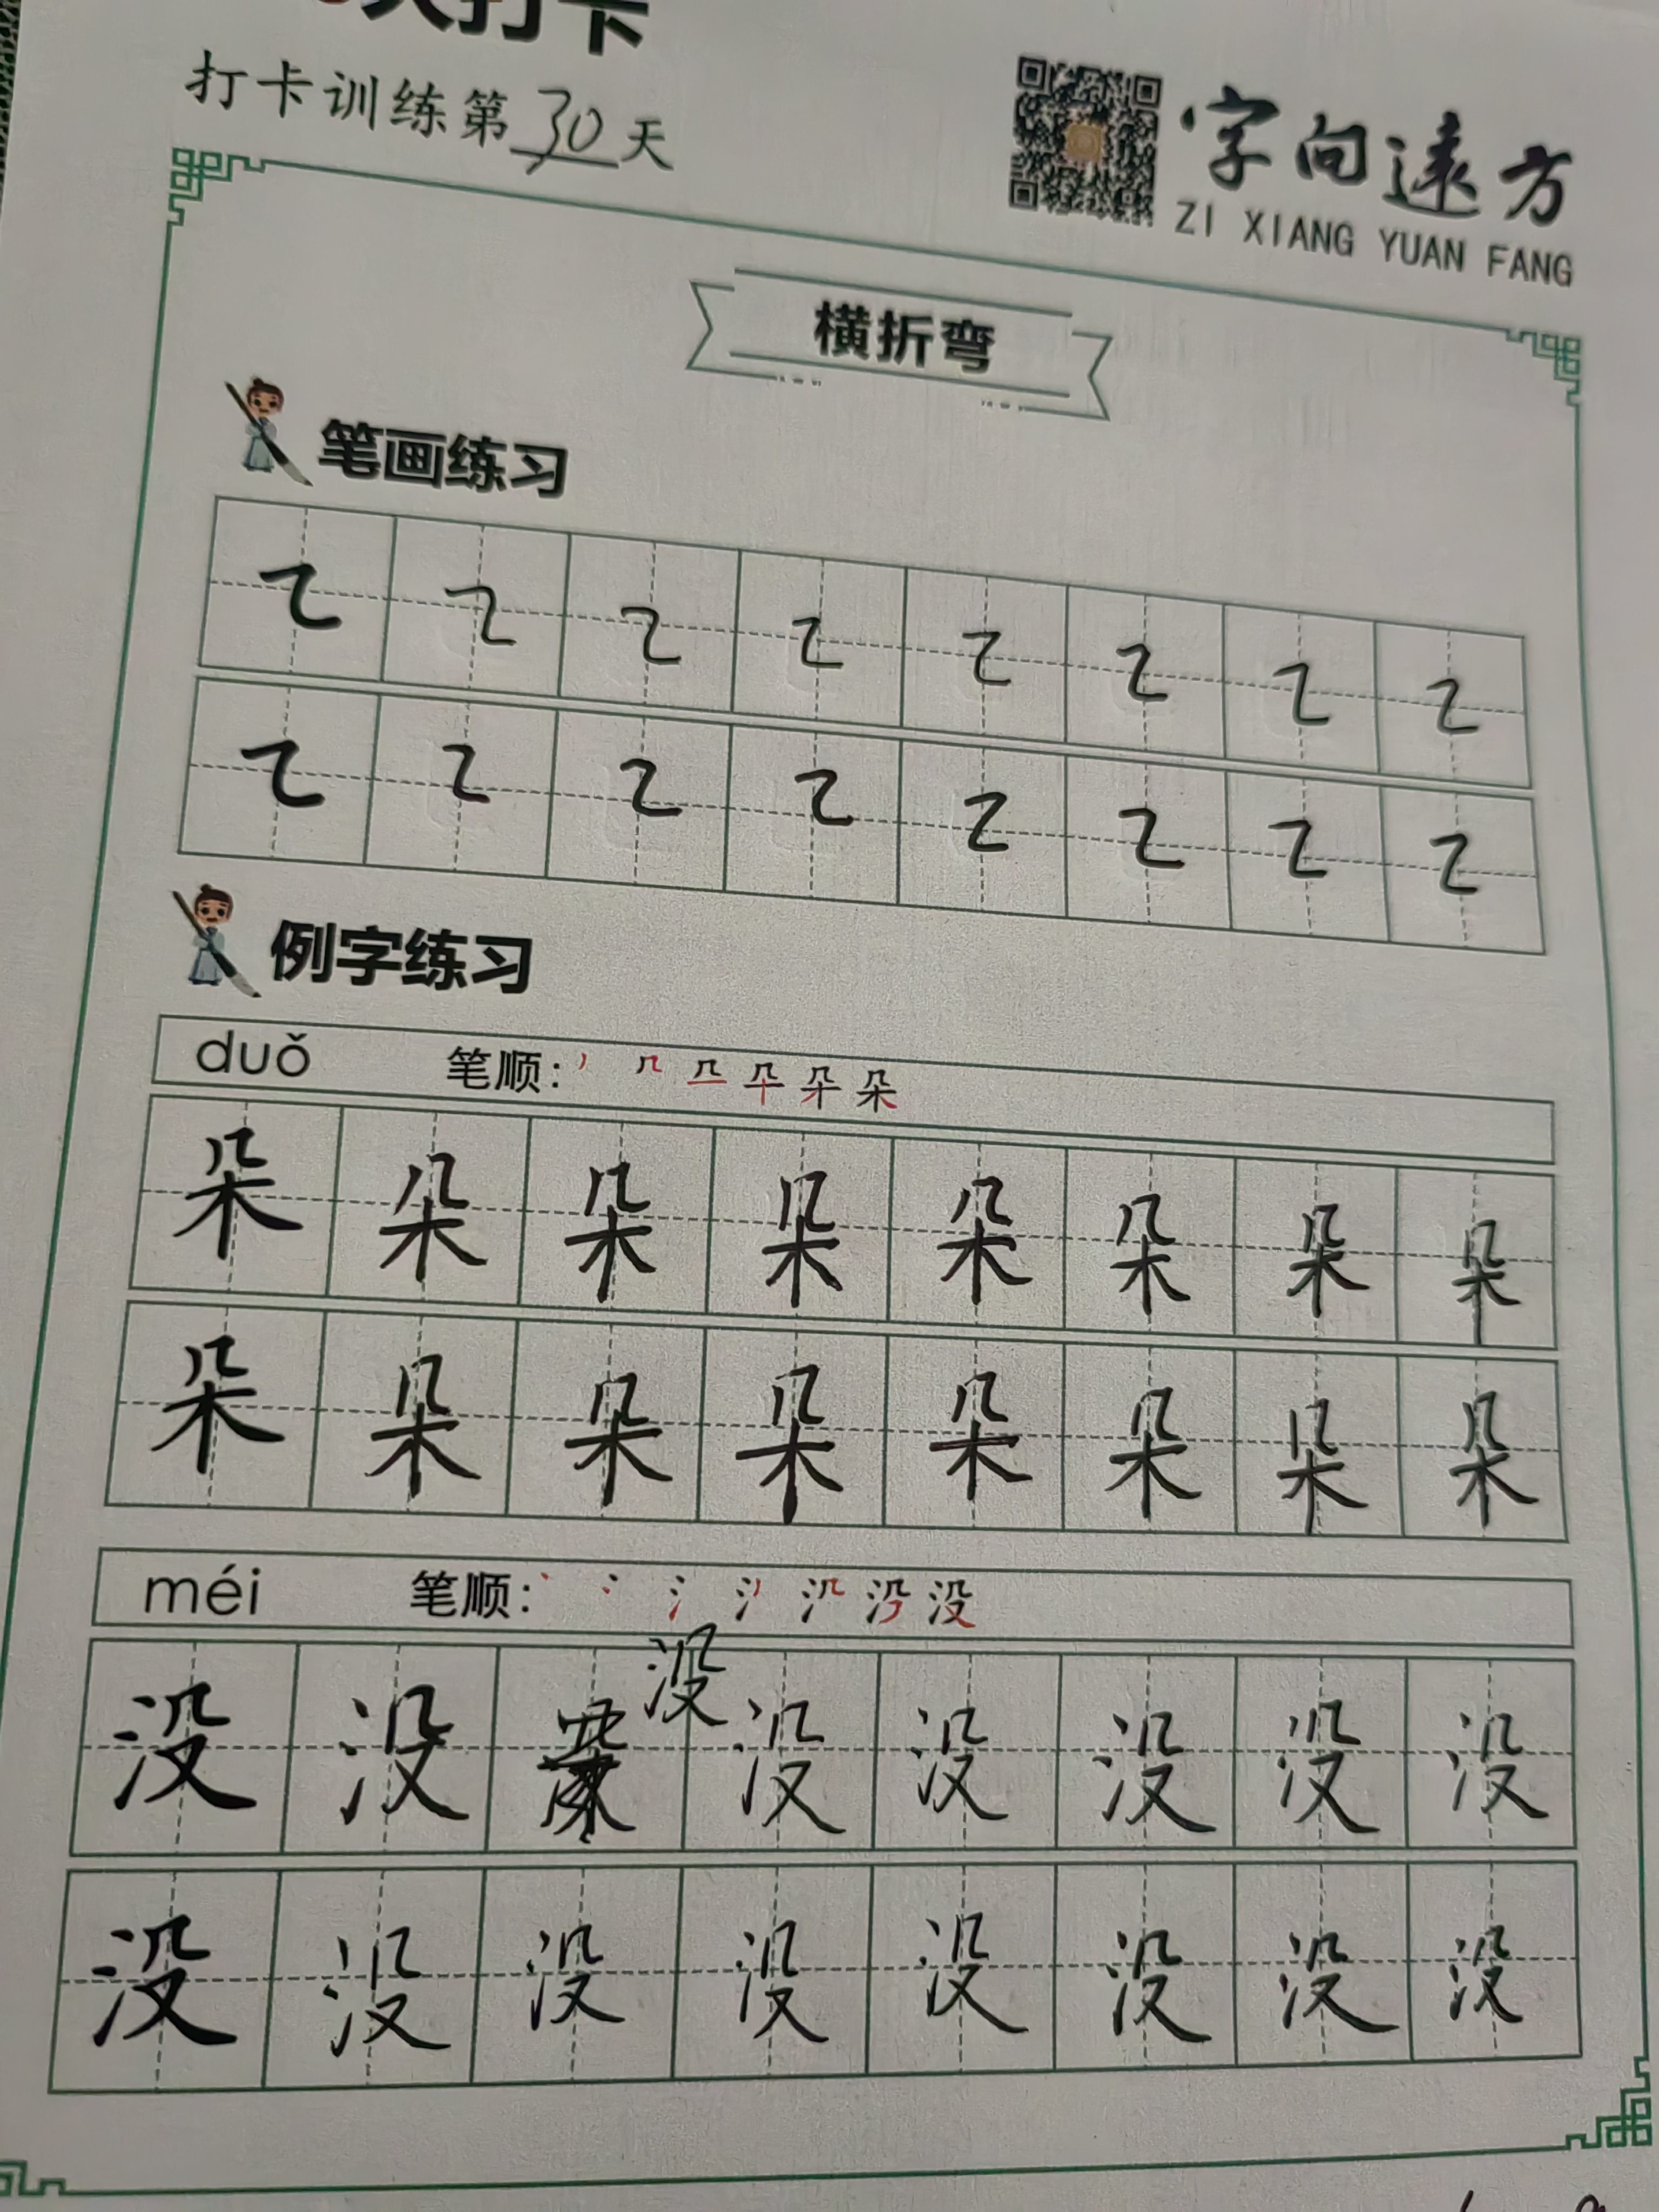 天打卡
打卡训练第30天
字向遠方
ZI XIANG YUAN FANG
横折弯
笔画练习
例字练习
duǒ 笔顺:
朵 朵 朵 朵 朵 朵 朵 朵
朵 朵 朵 朵 朵 朵 朵 朵
méi 笔顺:
没 没 没 没 没 没 没 没
没 没 没 没 没 没 没 没